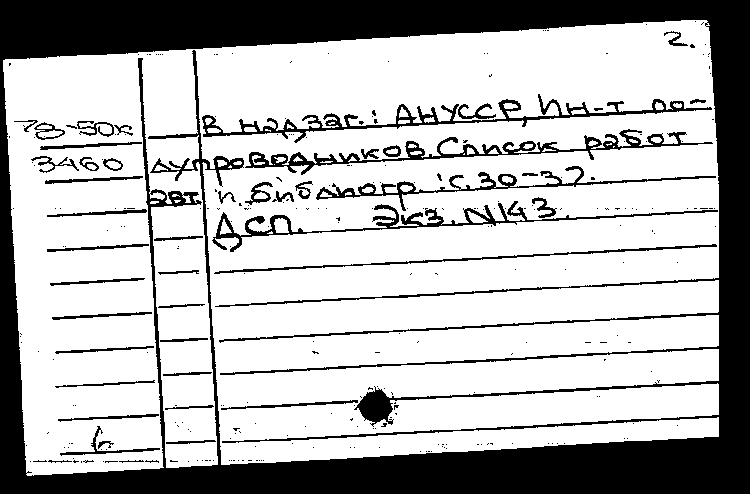 2.
78-50к В надзаг.: АНУССР, Ин-т по-
3460 лупроводников. Список работ
авт. и библиогр.: с. 30-37.
ДСП. Экз. N143.
6